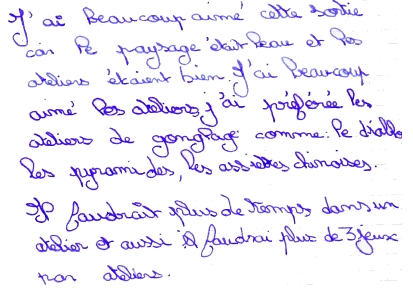 J'ai Beaucoup aimé cette sortie
car le paysage était beau et les
ateliers étaient bien. J'ai Beaucoup
aimé les ateliers, j'ai préférée les
ateliers de gonglage comme: le diablo
les pyramides, les assiettes chinoises.
Il faudrait plus de temps dans un
atelier et aussi il faudrai plus de 3 jeux
par ateliers.